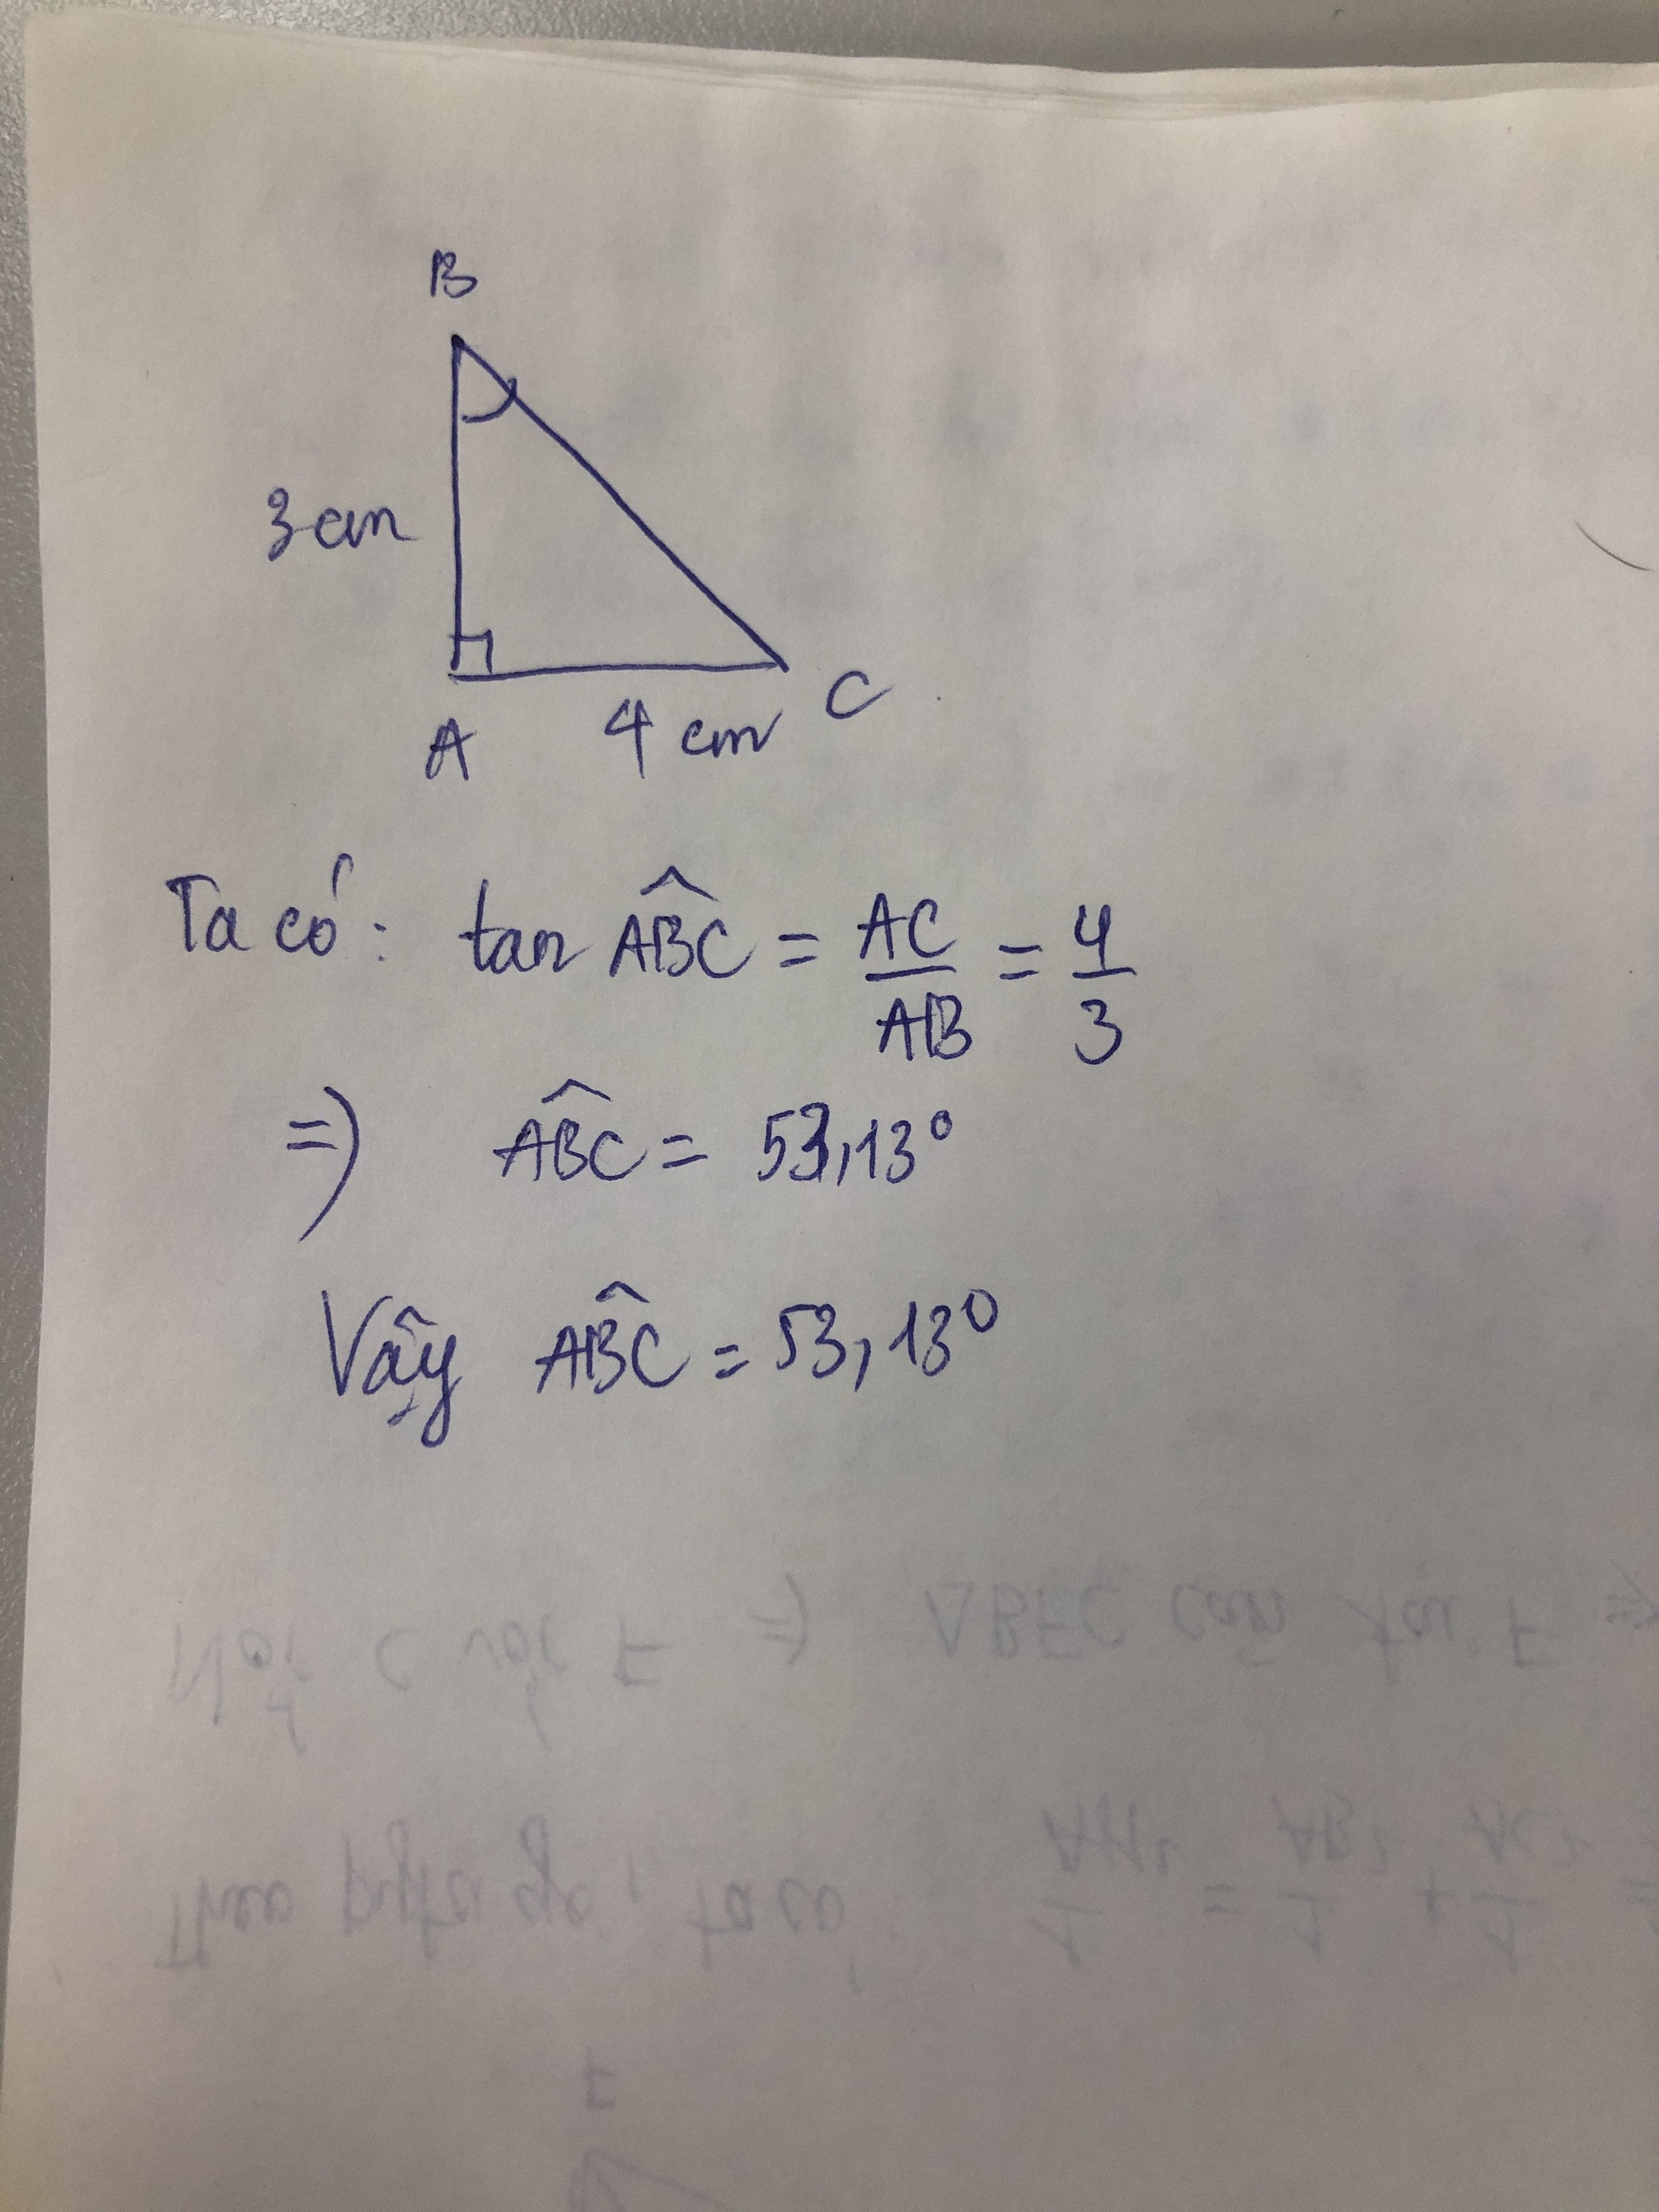 B
3 cm
A 4 cm C
Ta có: tan ABC^ = AC/AB = 4/3
=> ABC^ = 53,13°
Vậy ABC^ = 53,13°